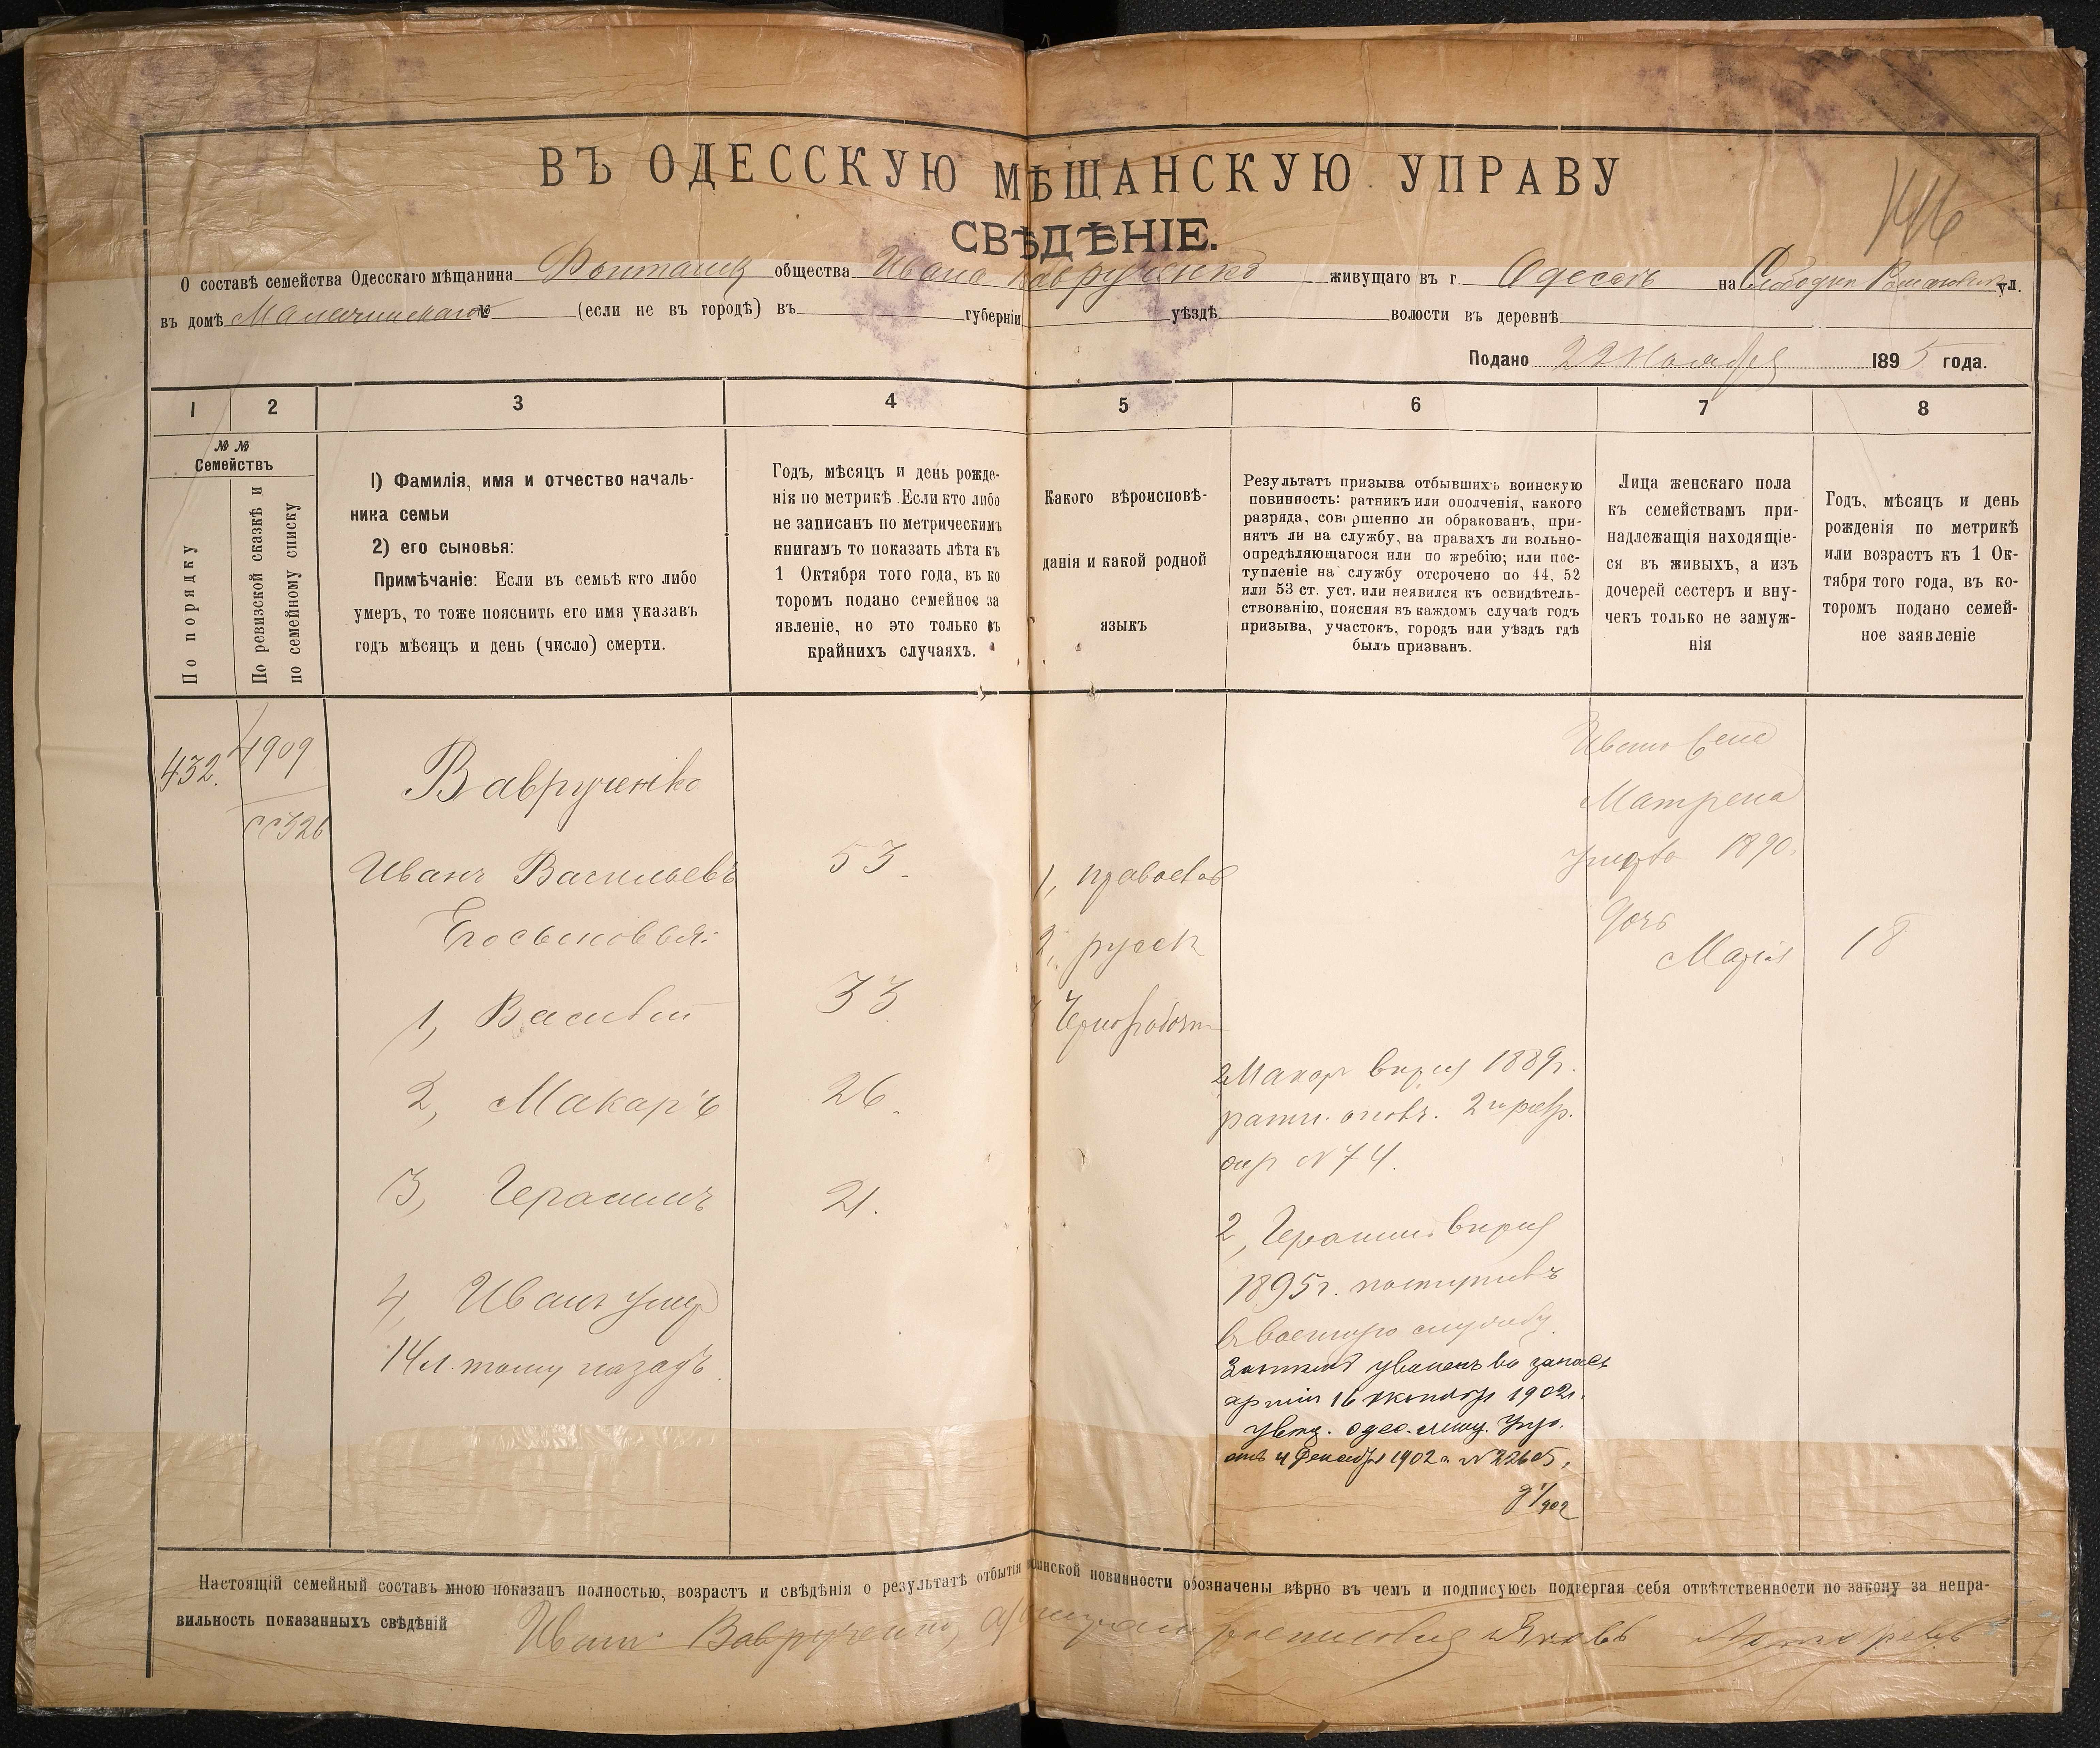 ВЪ ОДЕССКУЮ МѢЩАНСКУЮ УПРАВУ
СВѢДѢНІЕ.
О составѣ семейства Одесскаго мѣщанина общества Ивана Вавруженко живущаго въ г. Одессѣ на Слободкѣ Романовкѣ ул.
въ домѣ № (если не въ городѣ) въ губерніи уѣздѣ волости въ деревнѣ
Подано 22 Ноября 1895 года.
1 2 3 4 5 6 7 8
№ № Семействъ
По порядку
По ревизской сказкѣ и по семейному списку
1) Фамилія, имя и отчество началь-
ника семьи
2) его сыновья:
Примѣчаніе: Если въ семьѣ кто либо
умеръ, то тоже пояснить его имя указавъ
годъ мѣсяцъ и день (число) смерти.
Годъ, мѣсяцъ и день рожде-
нія по метрикѣ. Если кто либо
не записанъ по метрическимъ
книгамъ то показать лѣта къ
1 Октября того года, въ ко
торомъ подано семейное за
явленіе, но это только въ
крайнихъ случаяхъ.
Какого вѣроисповѣ-
данія и какой родной
языкъ
Результатъ призыва отбывшихъ воинскую
повинность: ратникъ или ополченія, какого
разряда, совершенно ли обракованъ, при-
нятъ ли на службу, на правахъ ли вольно-
опредѣляющагося или по жребію; или пос-
тупленіе на службу отсрочено по 44, 52
или 53 ст. уст. или неявился къ освидѣтель-
ствованію, поясняя въ каждомъ случаѣ годъ
призыва, участокъ, городъ или уѣздъ гдѣ
былъ призванъ.
Лица женскаго пола
къ семействамъ при-
надлежащія находящіе-
ся въ живыхъ, а изъ
дочерей сестеръ и вну-
чекъ только не замуж-
нія
Годъ, мѣсяцъ и день
рожденія по метрикѣ
или возрастъ къ 1 Ок-
тября того года, въ ко-
торомъ подано семей-
ное заявленіе
432. 4909
Ваврученко
Матрена
Иванъ Васильевъ 53.
1, православ
1890.
Его сыновья:
2, русск
дочь
Марія 18
1, Василій 33
Чернорабочій
2, Макаръ 26.
2 Макар 1889г.
ратн. 2го разр.
№ 74.
3, Герасимъ 21.
2, Герасим
1895г. поступивъ
4, Иванъ умер
14 л. тому назадъ
въ военную службу
уволенъ въ запасъ
арміи 16 1902г.
увед. одес. мѣщ. Упр.
отъ 4 Декабря 1902 г. № 22605.
Настоящій семейный составъ мною показанъ полностью, возрастъ и свѣдѣнія о результатѣ отбытія воинской повинности обозначены вѣрно въ чемъ и подписуюсь подвергая себя отвѣтственности по закону за непра-
вильность показанныхъ свѣдѣній Иванъ Ваврученко, Яковъ